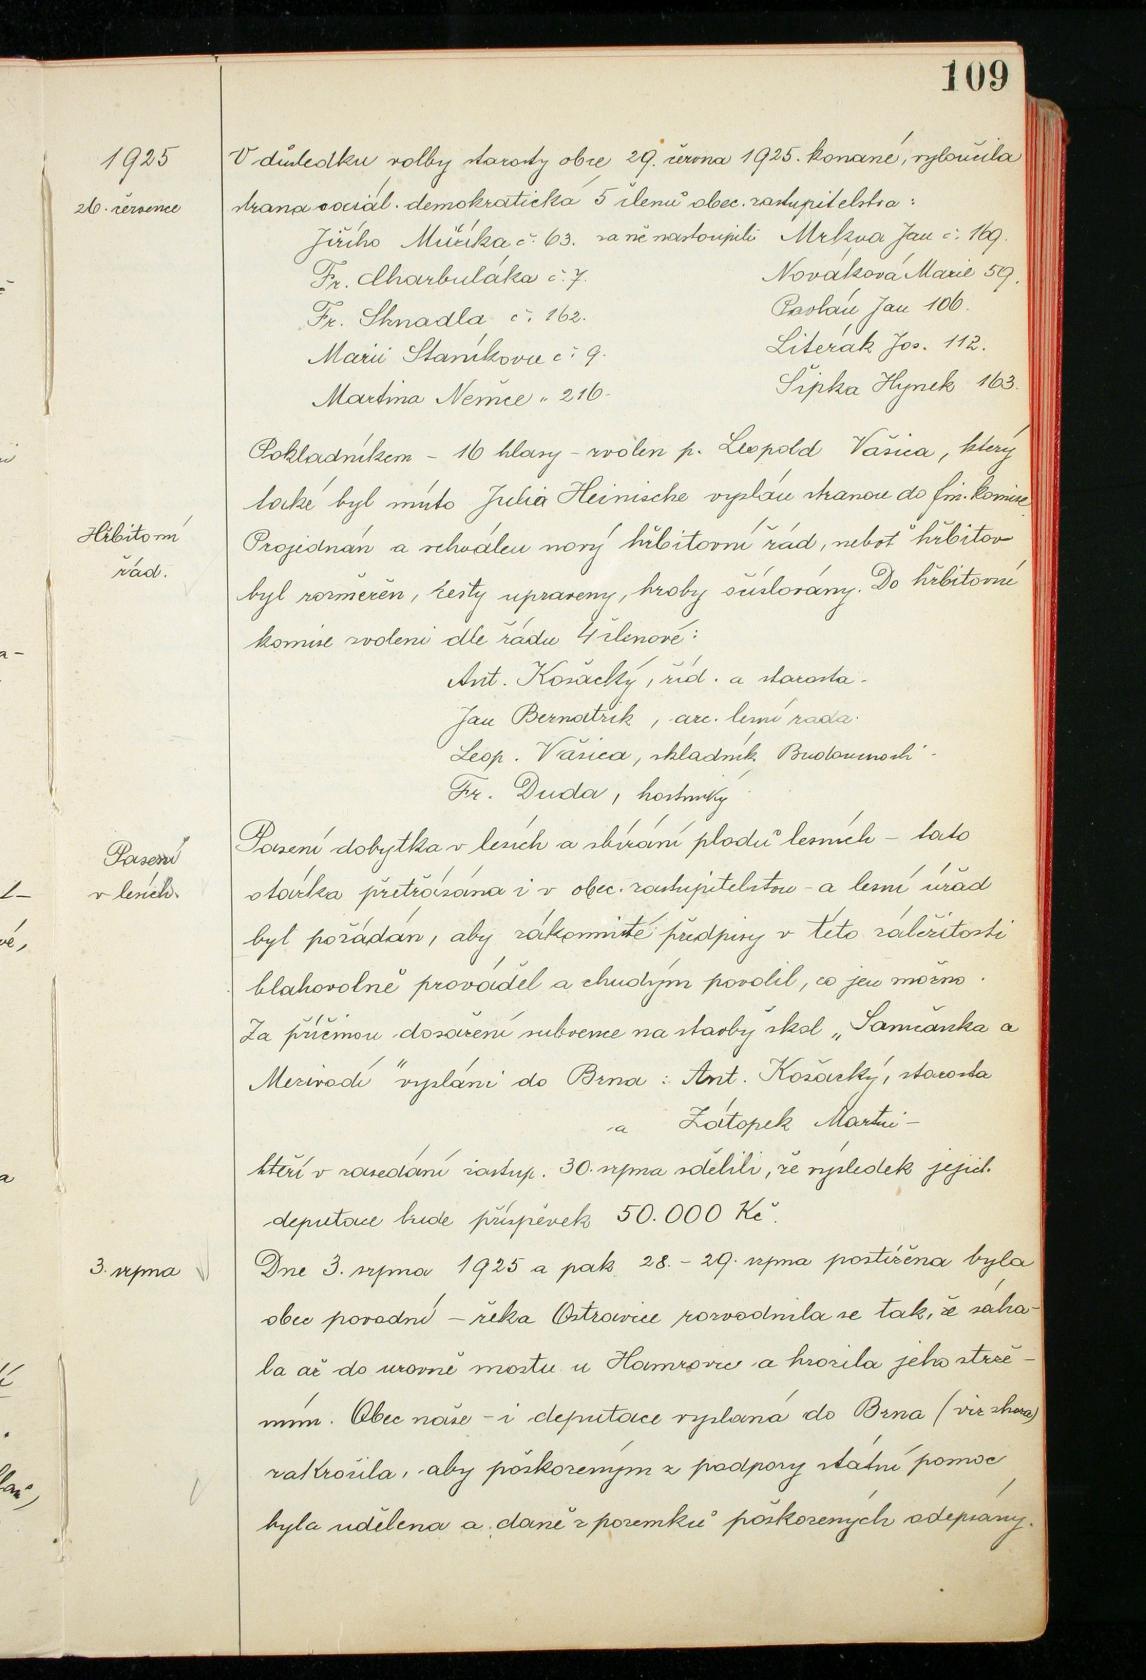 109
1925
V důsledku volby starosty obce 29. června 1925 konané, vyloučila
26. července
strana sociál. demokratická 5 členů obec. zastupitelstva :
Jiřího Mužíka č. 63. za ně nastoupili Mrkva Jan č. 169.
Fr. Charbuláka č. 7. Nováková Marie 59.
Fr. Sknadla č. 162. Paslán Jan 106.
Marii Staníkovu č. 9. Literák Jos. 112.
Martina Němce „ 216. Šipka Hynek 163.
Pokladníkem – 16 hlasy – zvolen p. Leopold Vašica, který
také byl místo Julia Heinische vyslán stranou do fin. komise.
Hřbitovní
Projednán a schválen nový hřbitovní řád, neboť hřbitov
řád.
byl rozměřen, cesty upraveny, hroby očíslovány. Do hřbitovní
komise zvoleni dle řádu 4 členové :
Ant. Košacký, říd. a starosta.
Jan Bernatzik, arc. lesní rada.
Leop. Vašica, skladník Budoucnosti –
Fr. Duda, hostinský
Pasení
Pasení dobytka v lesích a sbírání plodů lesních – tato
v lesích.
otázka přetřásána i v obec. zastupitelstvu – a lesní úřad
byl požádán, aby zákonnité předpisy v této záležitosti
blahovolně prováděl a chudým povolil, co jen možno.
Za příčinou dosažení subvence na stavby škol „Samčanka a
Mezivodí" vysláni do Brna : Ant. Košacký, starosta
a Zátopek Martin –
kteří v zasedání zastup. 30. srpna sdělili, že výsledek jejich
deputace bude příspěvek 50.000 Kč.
3. srpna
Dne 3. srpna 1925 a pak 28. – 29. srpna postižena byla
obec povodní – řeka Ostravice rozvodnila se tak, že sáha-
la až do úrovně mostu u Hamrovic a hrozila jeho strže-
ním. Obec naše – i deputace vyslaná do Brna (viz shora)
zakročila, aby poškozeným z podpory státní pomoc
byla udělena a daně z pozemků poškozených odepsány.